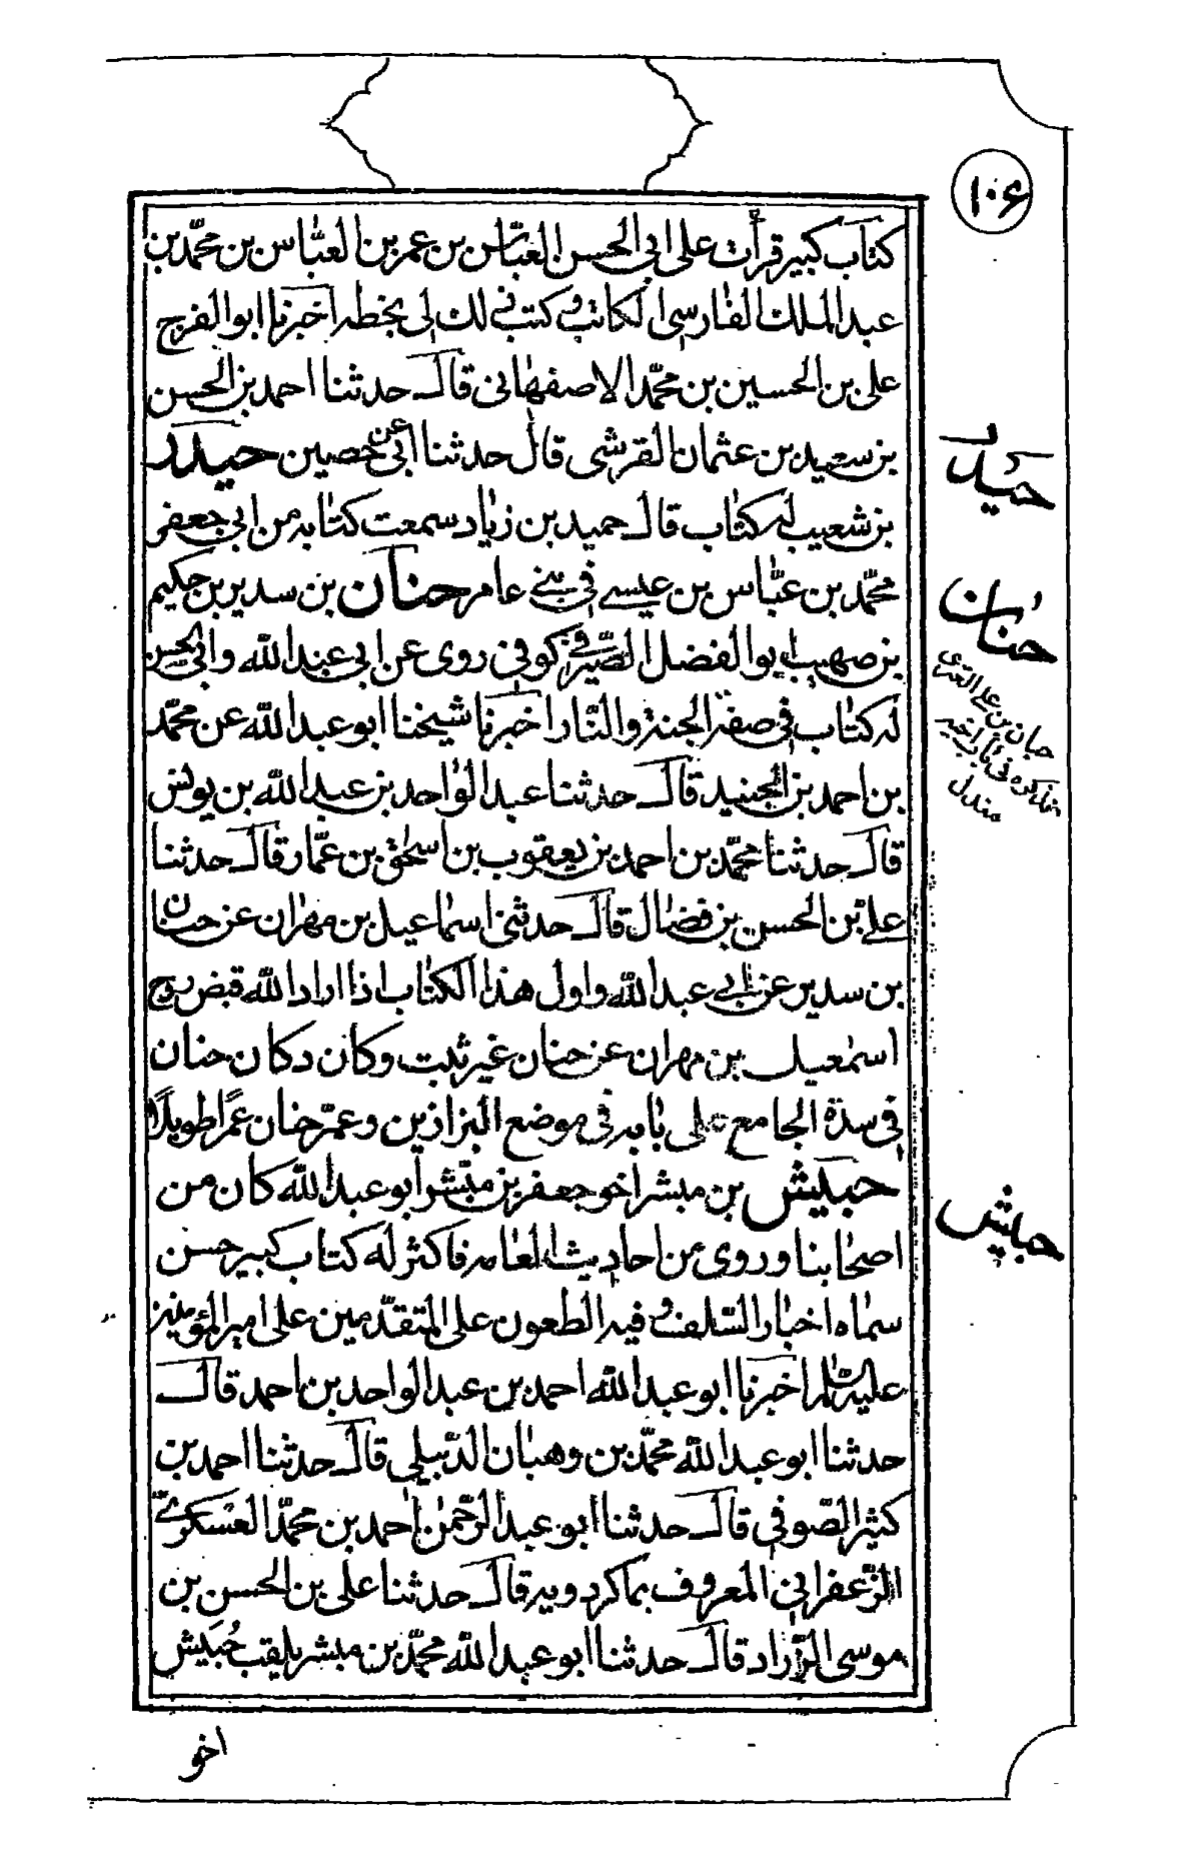 ١٠۶
كتاب كبير قرأت على ابى الحسن العباس بن عمر بن العبّاس بن محمّد بن
عبد الملك الفارسى الكاتب و كتب ذلك لى بخطه اخبرنا ابو الفرج
على بن الحسين بن محمّد الاصفهانى قال حدثنا احمد بن الحسن
بن سعيد بن عثمان القرشى قال حدثنا ابى عن حصين حيدر
بن شعيب له كتاب قال حميد بن زياد سمعت كتابه من ابى جعفر
محمّد بن عبّاس بن عيسى فى بنى عامر حنان بن سدير بن حكيم
بن صهيب ابو الفضل الصّيرفى كوفى روى عن ابى عبد الله و ابى الحسن
له كتاب فى صفة الجنة و النّار اخبرنا شيخنا ابو عبد الله عن محمّد
بن احمد بن الجنيد قال حدثنا عبد الواحد بن عبد الله بن يونس
قال حدثنا محمّد بن احمد بن يعقوب بن اسحٰق بن عمّار قال حدثنا
على بن الحسن بن فضال قال حدثنى اسماعيل بن مهران عن حنان
بن سدير عن ابى عبد الله و اول هذا الكتاب اذا اراد الله قبض روح
اسمٰعيل بن مهران عن حنان غير ثبت و كان دكان حنان
فى سدة الجامع على بابه فى موضع البزازين و عمّر حنان عمرًا طويلًا
حبيش بن مبشر اخو جعفر بن مبّشر ابو عبد الله كان من
اصحابنا و روى من احاديث العامه فاكثر له كتاب كبير حسن
سماه اخبار السّلف و فيه الطعون على المتقدّمين على امير المؤمنين
عليه السّلام اخبرنا ابو عبد الله احمد بن عبد الواحد بن احمد قال
حدثنا ابو عبد الله محمّد بن وهبان الدّبيلى قال حدثنا احمد بن
كثير الصّوفى قال حدثنا ابو عبد الرّحمٰن احمد بن محمّد العسكرى
الزّعفرانى المعروف بماكردويه قال حدثنا على بن الحسن بن
موسى الزّراد قال حدثنا ابو عبد الله محمّد بن مبشر يلقب حُبَيش
اخو
حيدر
حنان
حبان بن على العنزى
فى باب اخيه
مندل
حبيش